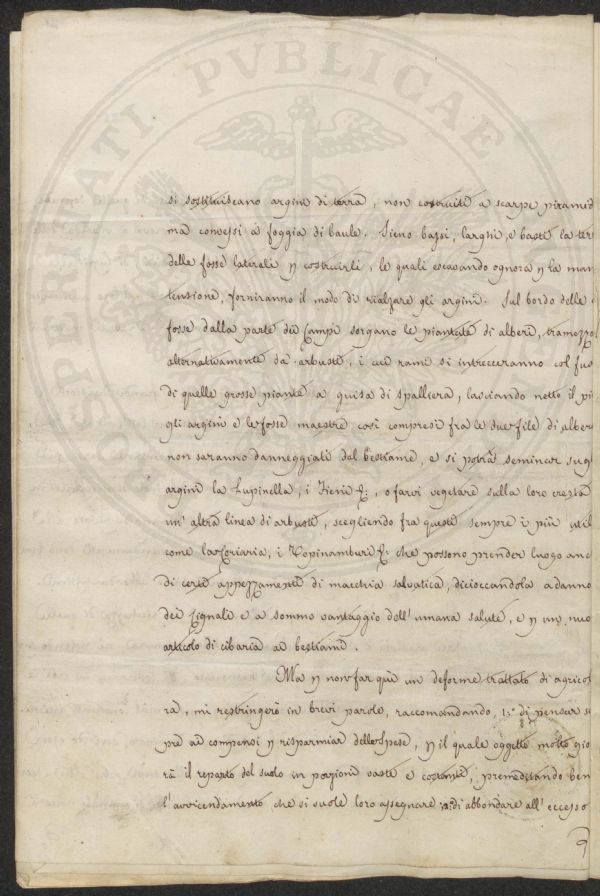 PROSPERITATI PVBLICAE
si sostituiscano argini di terra, non costruiti a scarpe piramid
ma convessi a foggia di baule. Sieno bassi, larghi, e basti la ter
delle fosse laterali p costruirli, le quali escavando ognora p la man
tensione, forniranno il modo di rialzare gli argini. Sul bordo delle
fosse dalla parte dei Campi sorgano le piantate di alberi, tramezzo
alternativamente da arbusti, i cui rami si intrecceranno col fus
di quelle grosse piante a guisa di spalliera, lasciando netto il pi
gli argini e le fosse maestre così compresi fra le due file di alber
non saranno danneggiati dal bestiame, e si potrà seminar sug
argini la Lupinella, i Fieni &:, o farvi vegetare sulla loro cresta
un' altra linea di arbusti, scegliendo fra questi sempre i più util
come la Coriaria, i Topinamburi &: che possono prender luogo anc
di certi appezzamenti di macchia salvatica, dicioccandola a danno
dei Cignali e a sommo vantaggio dell' umana salute, e p un nuo
articolo di cibaria ai bestiami.
Ma p non far quì un deforme trattato di agricol
ra, mi restringerò in brevi parole, raccomandando, 1.° di pensar se
pre ai compensi p risparmiar delle Spese, p il quale oggetto molto gio
rà il reparto del suolo in porzioni vaste e costanti, premeditando ben
l'avvicendamento che si suole loro assegnare 2.° di abbondare all' eccesso